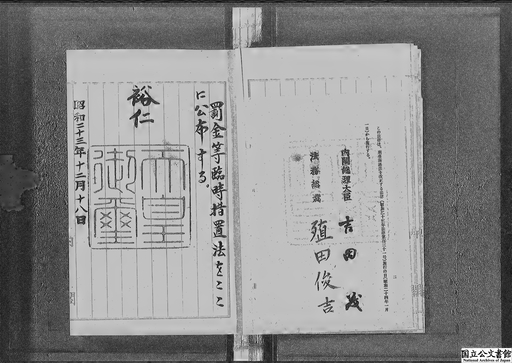 罰金等臨時措置法をここ
に公布する。
裕仁
昭和二十三年十二月十八日
天皇
御璽
内閣総理大臣 吉田茂
法務総裁 殖田俊吉
国立公文書館
National Archives of Japan